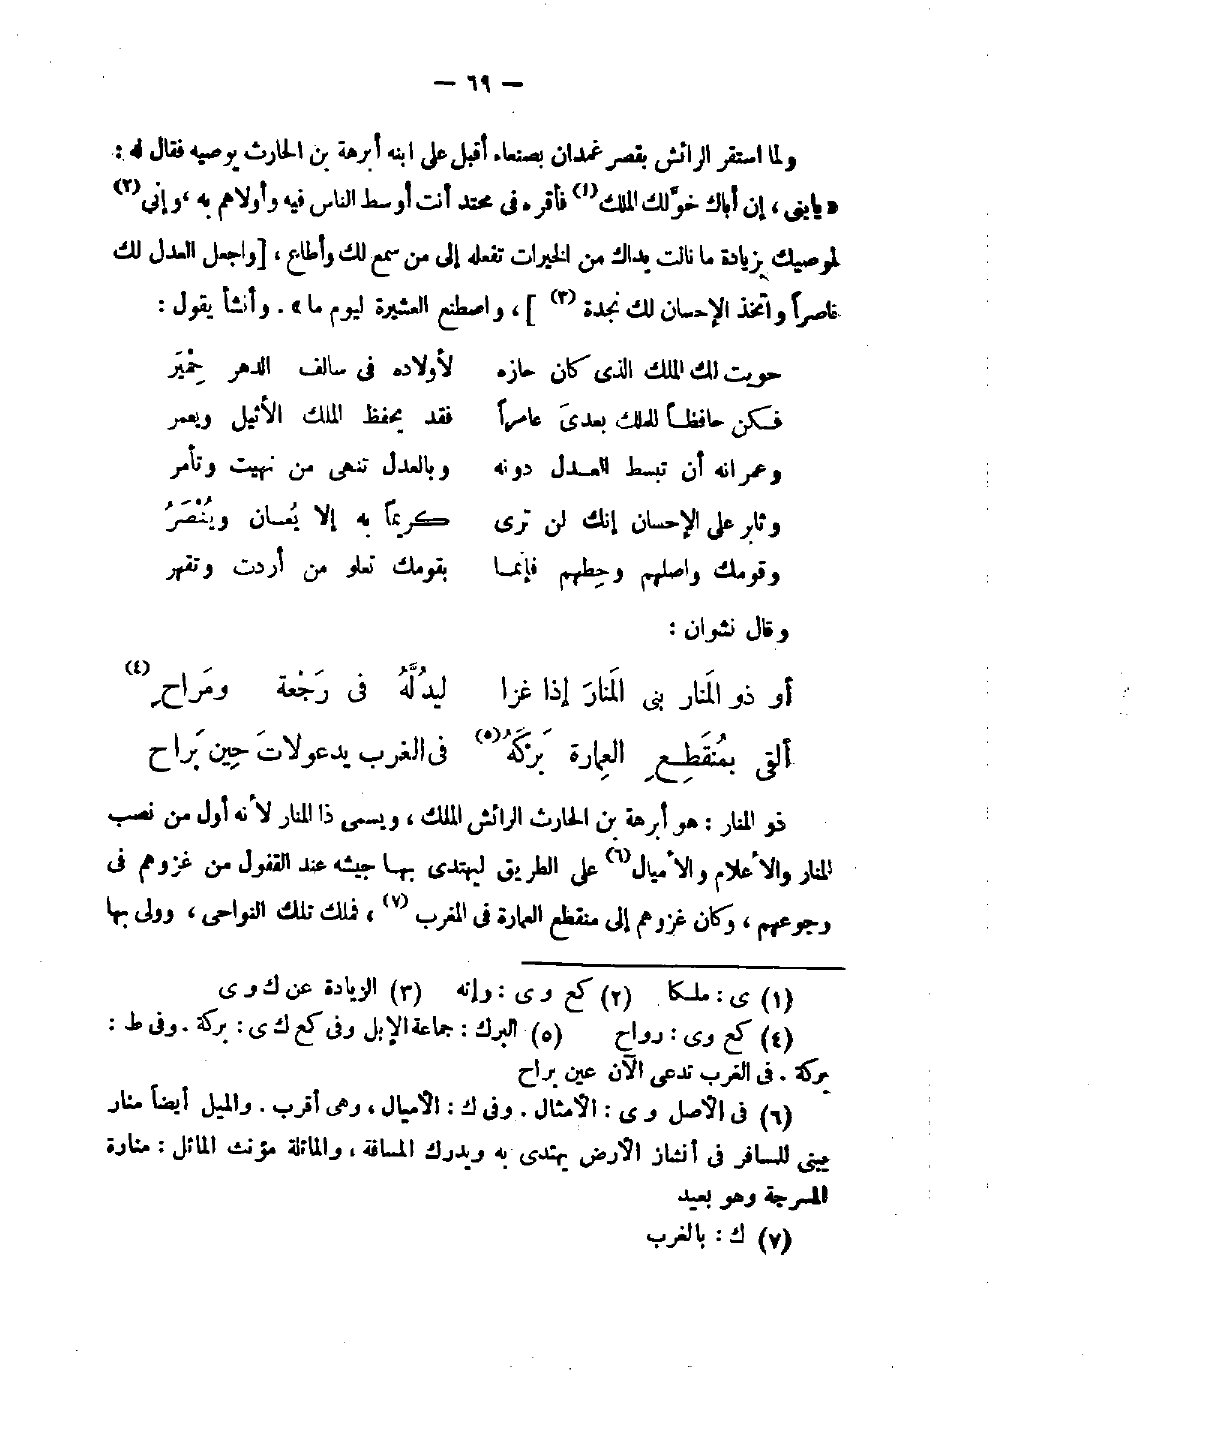 — ٦٩ —
ولما استقر الرائش بقصر غمدان بصنعاء أقبل على ابنه أبرهة بن الحارث يوصيه فقال له :
« يا بنى ، إن أباك خوَّلك الملك (١) فأقره فى محتد أنت أوسط الناس فيه وأولاهم به ، وإنى (٢)
لموصيك بزيادة ما نالت يداك من الخيرات تفعله إلى من سمع لك وأطاع ، [واجعل العدل لك
ناصراً واتخذ الإحسان لك نجدة (٣) ] ، واصطنع العشيرة ليوم ما » . وأنشأ يقول :
حويت لك الملك الذى كان حازه لأولاده فى سالف الدهر حِمْيَر
فكن حافظاً للملك بعدىَ عامراً فقد يحفظ الملك الأثيل ويعمر
وعمرانه أن تبسط العدل دونه وبالعدل تنهى من نهيت وتأمر
وثابر على الإحسان إنك لن ترى كريماً به إلا يُعان ويُنْصَرُ
وقومك واصلهم وحِطهم فإنما بقومك تعلو من أردت وتقهر
وقال نشوان :
أو ذو المَنار بنى المَنارَ إذا غزا ليدُلَّهُ فى رَجْعة ومَراحِ (٤)
ألقى بمُنقَطِعِ العِمارة بَركَهُ (٥) فى الغرب يدعو لاتَ حِين بَراح
ذو المنار : هو أبرهة بن الحارث الرائش الملك ، ويسمى ذا المنار لأنه أول من نصب
المنار والأعلام والأميال (٦) على الطريق ليهتدى بها جيشه عند القفول من غزوهم فى
رجوعهم ، وكان غزوهم إلى منقطع العمارة فى المغرب (٧) ، فملك تلك النواحى ، وولى بها
(١) ى : ملكا (٢) كع و ى : وإنه (٣) الزيادة عن ك و ى
(٤) كع وى : رواح (٥) البرك : جماعة الإبل وفى كع ك ى : بركة . وفى ط :
بركة . فى الغرب تدعى الآن عين براح
(٦) فى الأصل و ى : الأمثال . وفى ك : الأميال ، وهى أقرب . والميل أيضاً منار
يبنى للمسافر فى أنشاز الأرض يهتدى به ويدرك المسافة ، والمائلة مؤنث المائل : منارة
المسرجة وهو بعيد
(٧) ك : بالغرب